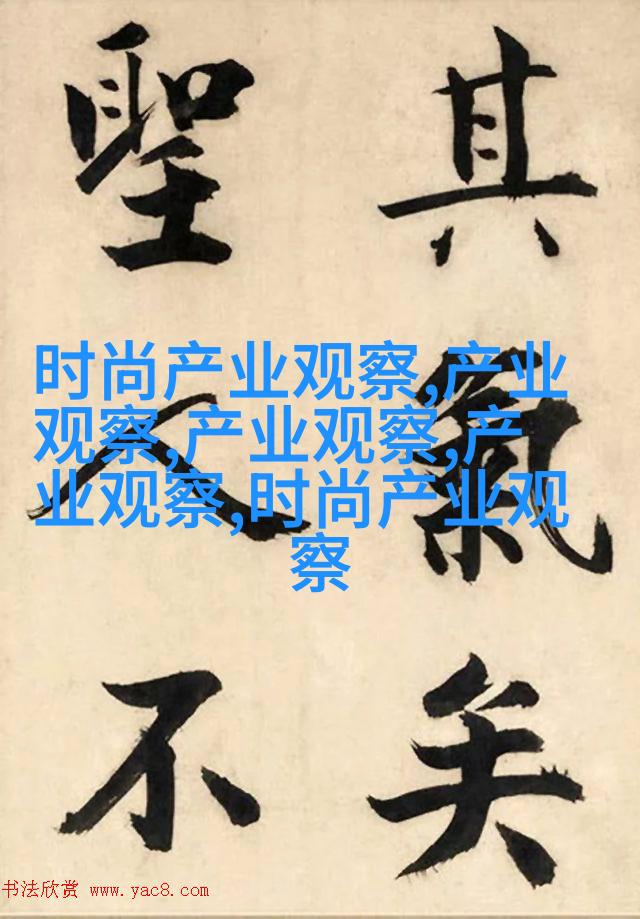 其氣矣
聖人不
时尚产业观察,产业
观察,产业观察,产
业观察,时尚产业观
察
书法欣赏 www.yac8.com